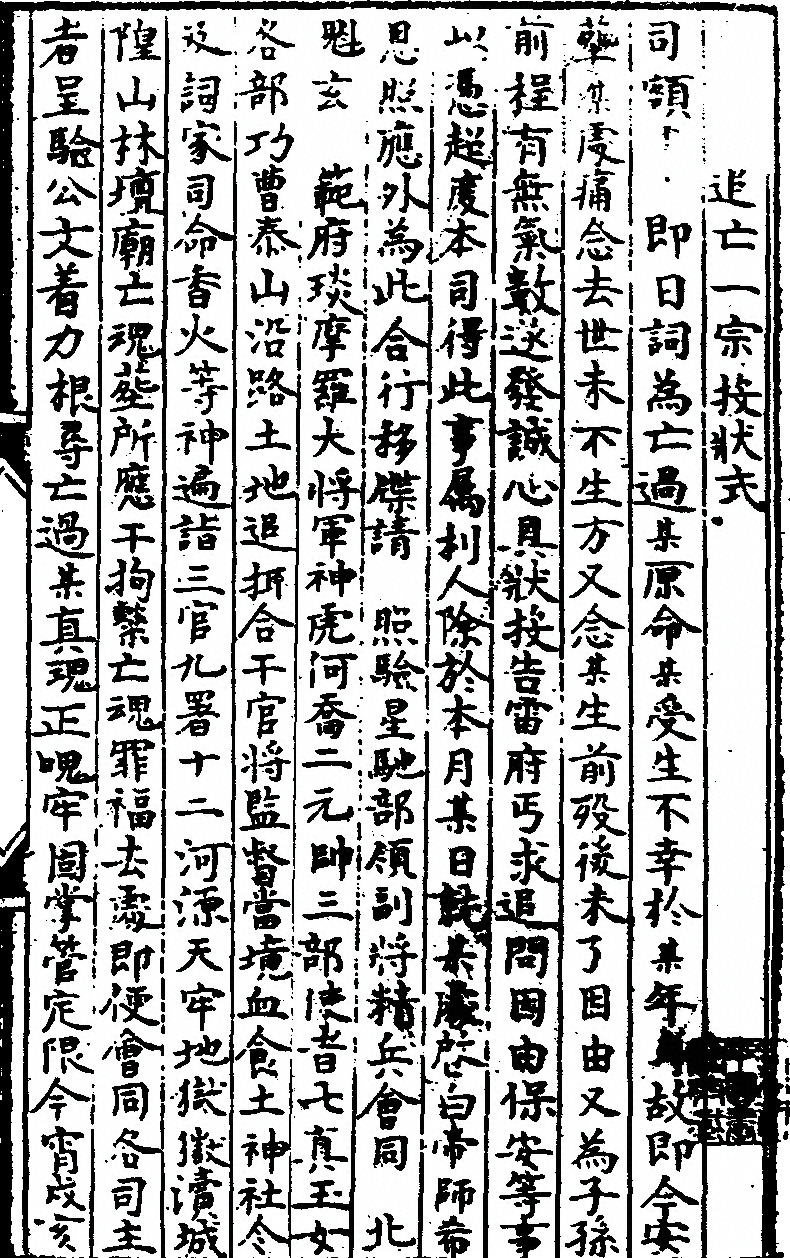 追亡一宗投狀式
司額 即日詞為亡過某原命某受生不幸於某年 故即今安
塟某處痛念去世未不生方又念某生前歿後未了因由又為子孫
前程有無氣數遂發誠心具狀投告雷府丐求追問因由保安等事
以憑超度本司得此事属利人除於本月某日就某處啓白帝師希
恩照應外為此合行移牒請 照驗星馳部領副將精兵會同 北
魁玄 範府琰摩羅大將軍神虎何喬二元帥三部使者七真玉女
各部功曹泰山沿路土地追 合干官將監督當境血食土神社令
及詞家司命香火等神遍詣三官九署十二河源天牢地獄嶽瀆城
隍山林壇廟亡魂 所應干拘繫亡魂罪福去處即便會同各司主
者呈驗公文着力根尋亡過某真魂正魄牢固掌管定限今宵戌亥